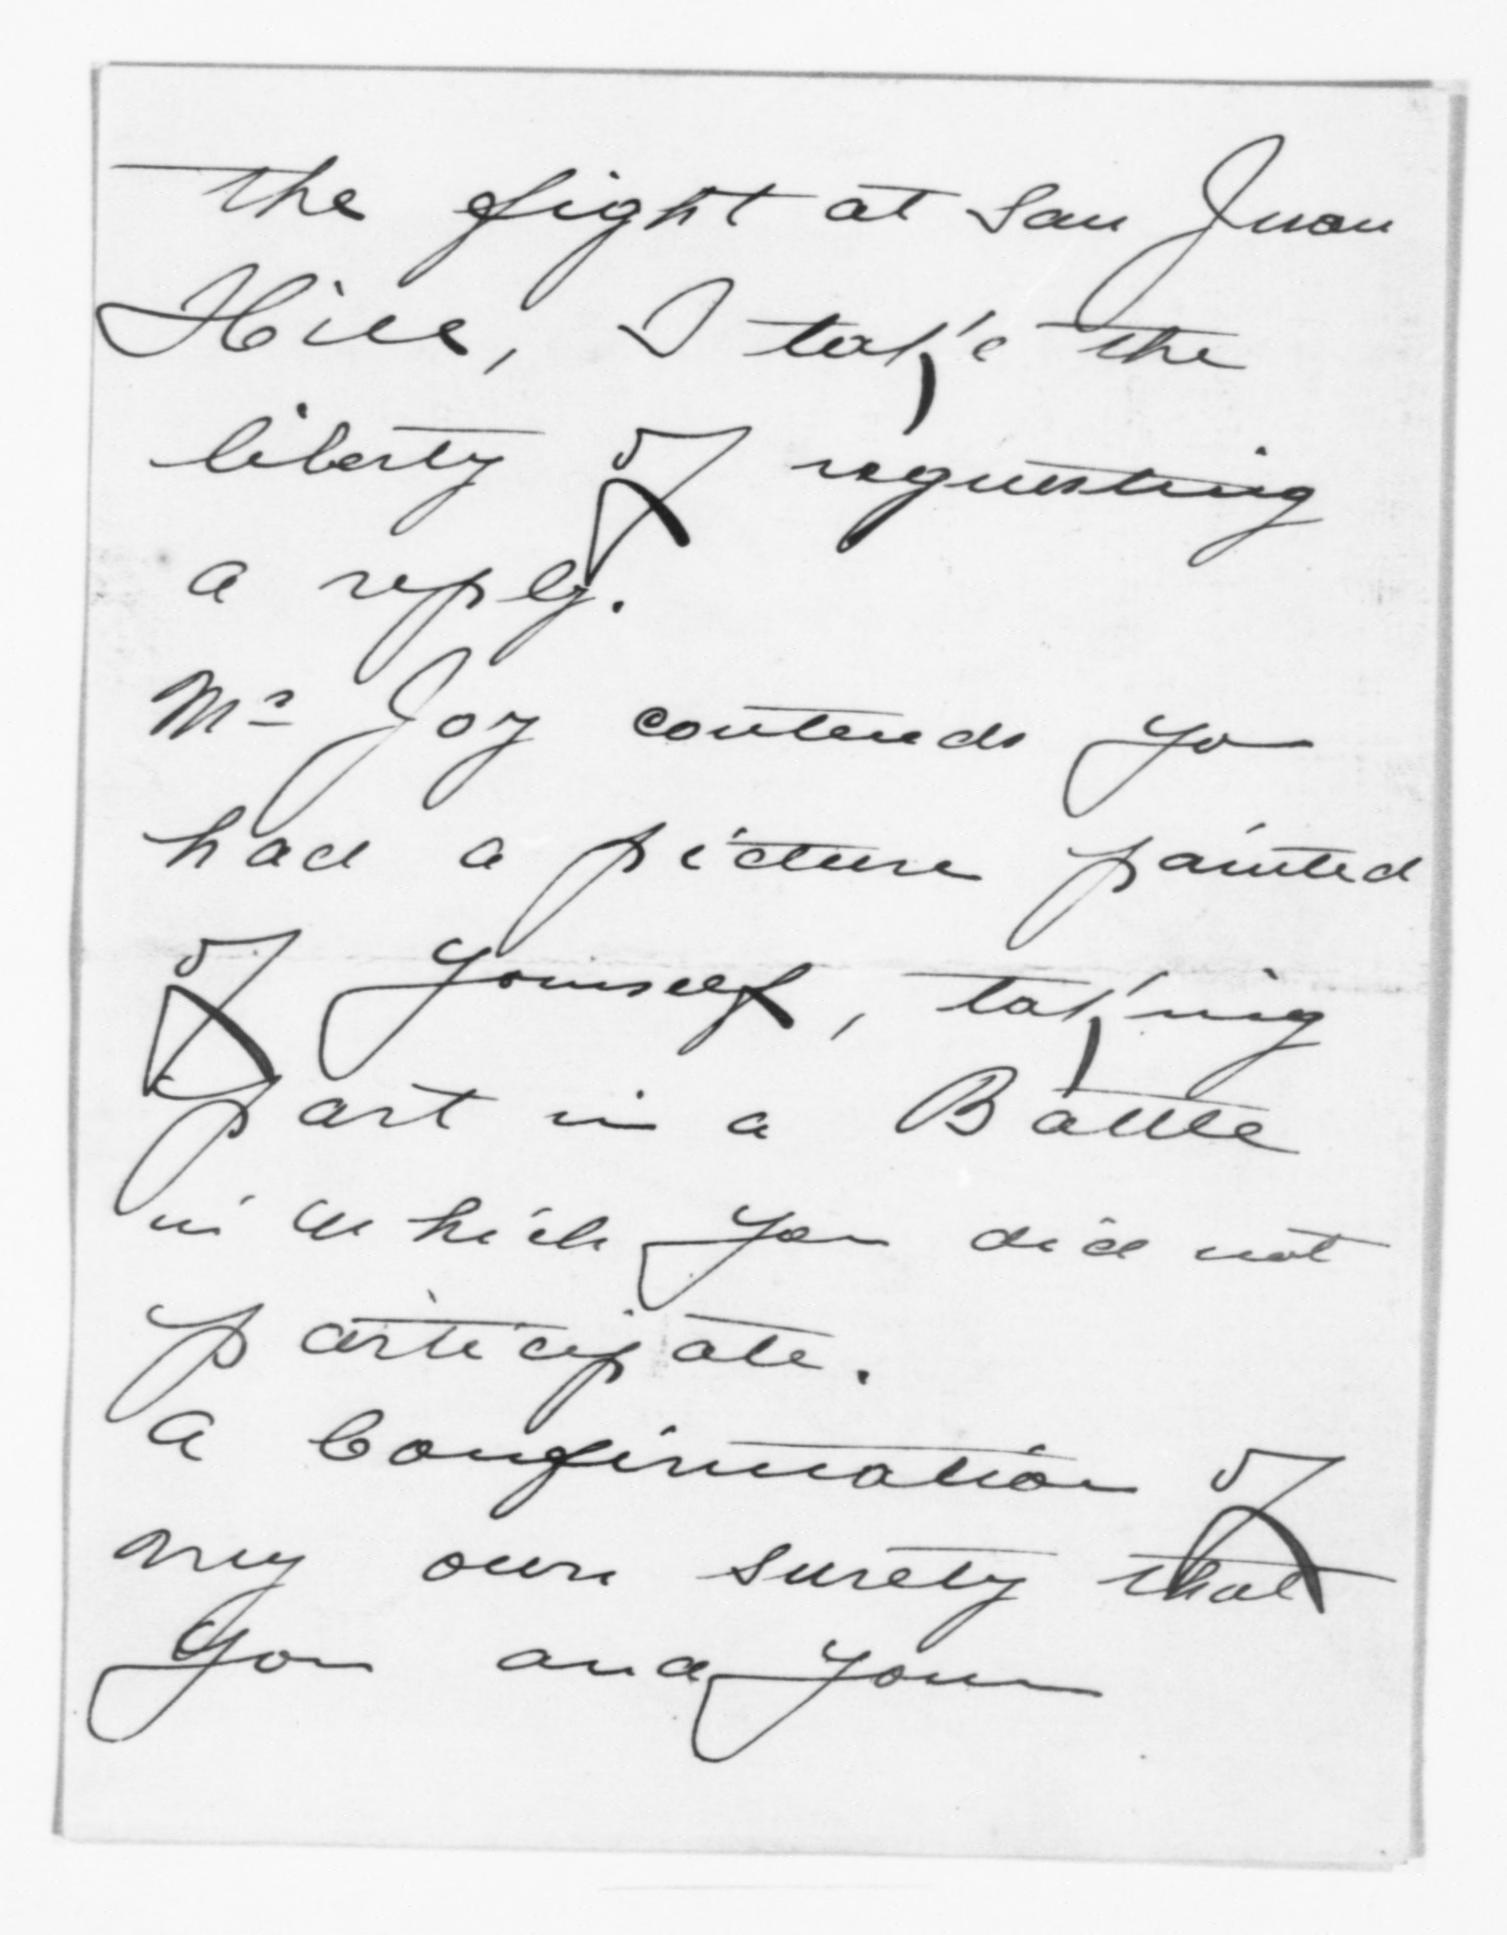 the fight at San Juan
Hill, I take the
liberty of requesting
a reply.
Mr Joy contends you
had a picture painted
of yourself, taking
part in a Battle
in which you did not
participate.
A Confirmation of
my own surety that
you and your